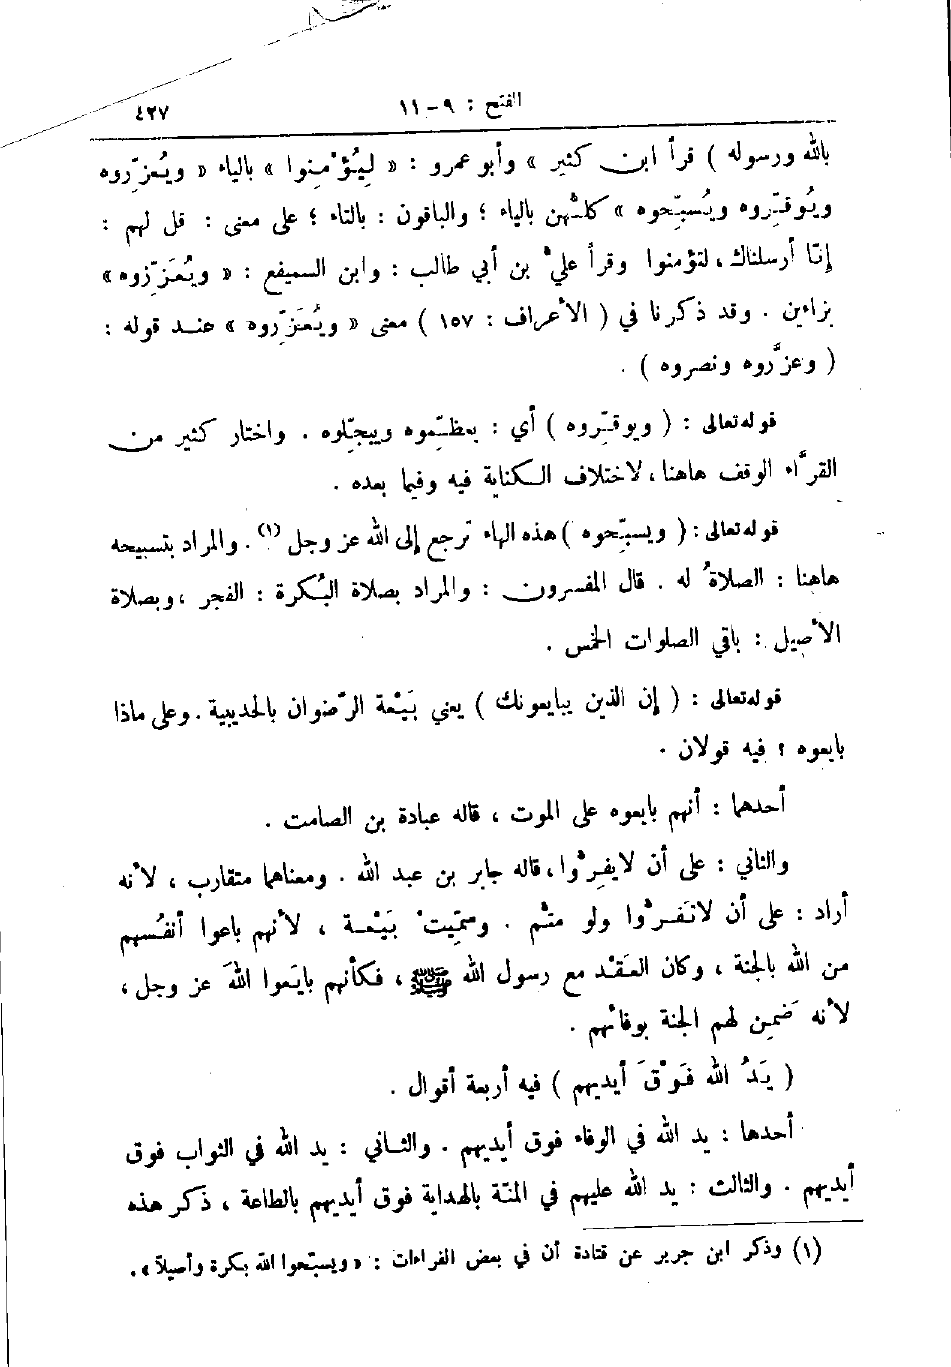 الفتح : ٩ - ١١ ٤٢٧
بالله ورسوله ) قرأ ابن كثير » وأبو عمرو : « لِيُؤْمِنوا » بالياء « ويُعزِّروه
ويُوقِّروه ويُسبِّحوه » كلُّهن بالياء ؛ والباقون : بالتاء ؛ على معنى : قل لهم :
إنّا أرسلناك ، لتؤمنوا وقرأ عليّ بن أبي طالب : وابن السميفع : « ويُعَزِّزوه »
بزاءين . وقد ذكرنا في ( الأعراف : ١٥٧ ) معنى « ويُعَزِّروه » عند قوله :
( وعزَّروه ونصروه ) .
قوله تعالى : ( ويوقِّروه ) أي : يعظِّموه ويبجِّلوه . واختار كثير من
القرَّاء الوقف هاهنا ، لاختلاف الكناية فيه وفيما بعده .
قوله تعالى : ( ويسبِّحوه ) هذه الهاء ترجع إلى الله عز وجل (١) . والمراد بتسبيحه
هاهنا : الصلاةُ له . قال المفسرون : والمراد بصلاة البُكرة : الفجر ، وبصلاة
الأصيل : باقي الصلوات الخمس .
قوله تعالى : ( إن الذين يبايعونك ) يعني بَيْعة الرّضوان بالحديبية . وعلى ماذا
بايعوه ؟ فيه قولان .
أحدهما : أنهم بايعوه على الموت ، قاله عبادة بن الصامت .
والثاني : على أن لا يفِرُّوا ، قاله جابر بن عبد الله . ومعناهما متقارب ، لأنه
أراد : على أن لا تَفِرُّوا ولو متُّم . وسمِّيتْ بَيْعة ، لأنهم باعوا أنفُسهم
من الله بالجنة ، وكان العَقْد مع رسول الله ﷺ ، فكأنهم بايَعوا اللهَ عز وجل ،
لأنه ضَمِن لهم الجنة بوفائهم .
( يَدُ الله فَوْقَ أيديهم ) فيه أربعة أقوال .
أحدها : يد الله في الوفاء فوق أيديهم . والثاني : يد الله في الثواب فوق
أيديهم . والثالث : يد الله عليهم في المنّة بالهداية فوق أيديهم بالطاعة ، ذكر هذه
(١) وذكر ابن جرير عن قتادة أن في بعض القراءات : « ويسبِّحوا الله بكرة وأصيلاً » .